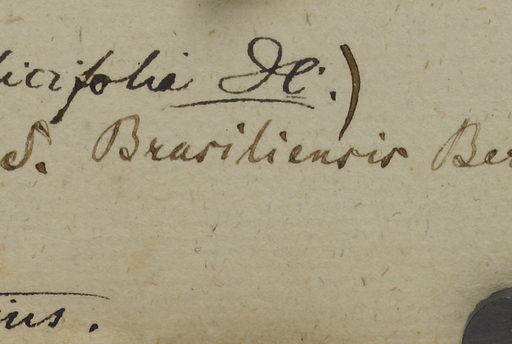 licifolia DC.)
S. Brasiliensis Ber
ius.